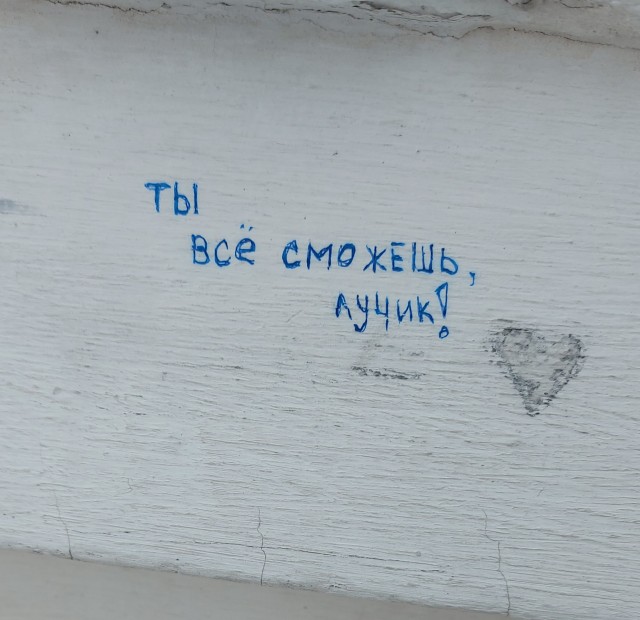 ты
всё сможешь,
лучик!